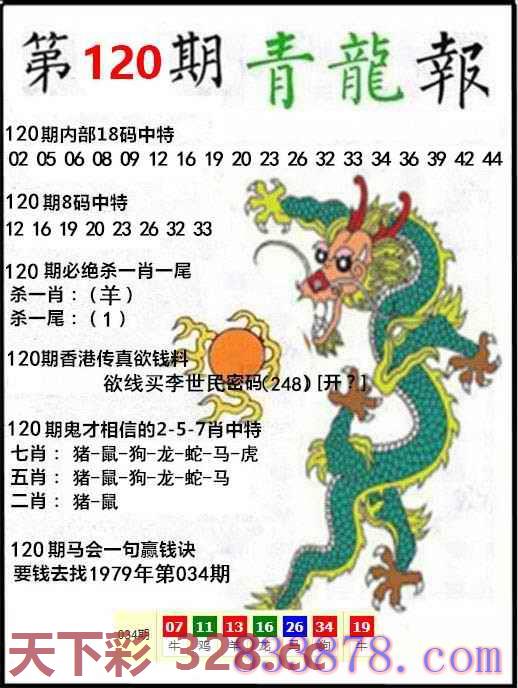 第120期青龍報
120期内部18码中特
02 05 06 08 09 12 16 19 20 23 26 32 33 34 36 39 42 44
120期8码中特
12 16 19 20 23 26 32 33
120期必绝杀一肖一尾
杀一肖：（羊）
杀一尾：（1）
120期香港传真欲钱料
欲线买李世民密码(248)[开?]
120期鬼才相信的2-5-7肖中特
七肖：猪-鼠-狗-龙-蛇-马-虎
五肖：猪-鼠-狗-龙-蛇-马
二肖：猪-鼠
120期马会一句赢钱诀
要钱去找1979年第034期
034期 07 11 13 16 26 34 19
牛 鸡 羊 龙 马 狗 牛
天下彩 328.cc
833878.com